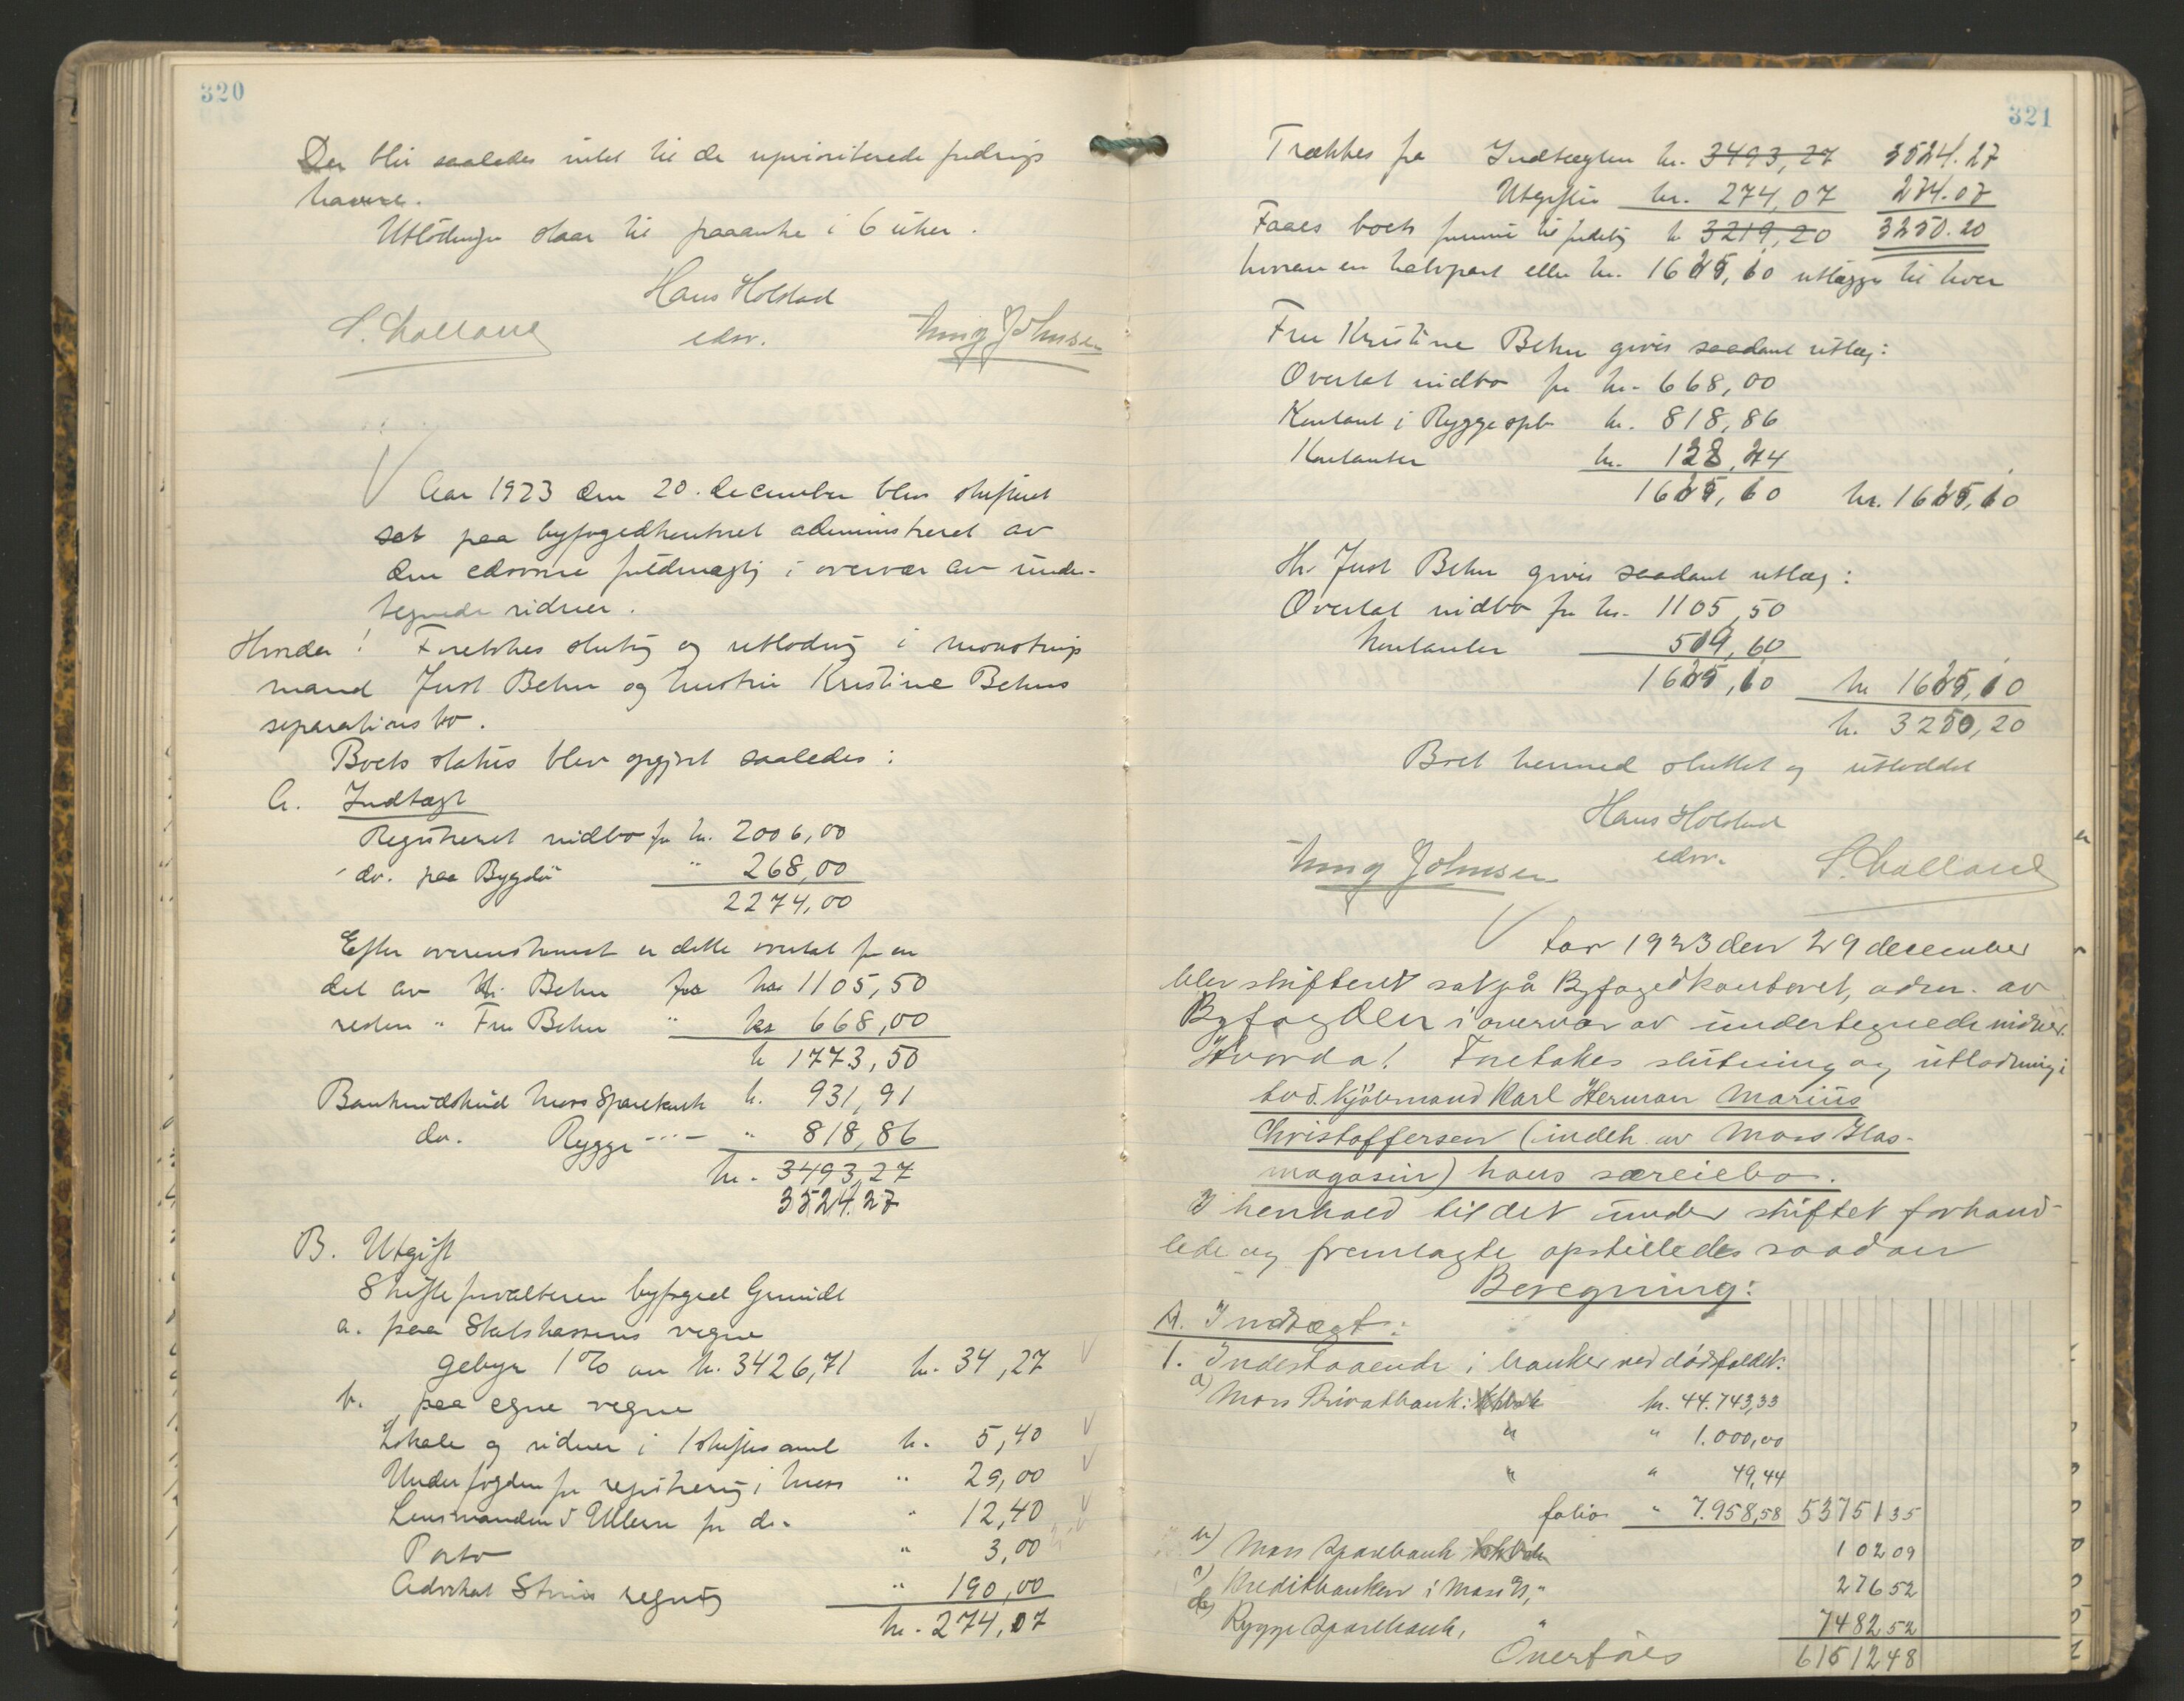 320
Der blir saaledes intet til de uprioriterede fordrings
havere.
Utlodningen staar til paaanke i 6 uker.
Hans Holstad
edsv.
S. Challand
Ming Johnsen
Aar 1923 den 20. december blev skifteret
sat paa byfogedkontoret administreret av
den edsvorne fuldmægtig i overvær av under-
tegnede vidner.
Hvorda! Foretokes slutng og utlodng i monotrings
mand Just Behn og hustru Kristine Behns
separationsbo.
Boets status blev opgjort saaledes:
A. Indtægt
Registreret indbo for kr. 2006,00
do. paa Bygdö " 268,00
2274,00
Efter overenskomst er dette overtat for en
del av Hr. Behn for kr 1105,50
resten " Fru Behn " kr 668,00
kr 1773,50
Bankindskud Moss Sparebank kr. 931,91
do. Rygge -"- " 818,86
kr. 3493,27
3524.27
B. Utgift
Skifteforvalteren byfoged Grundt
a. paa Statskassens vegne
gebyr 1% av kr. 3426,71 kr. 34,27
b. paa egne vegne
Lokale og vidner i 1 skiftesaml kr. 5,40
Underfogden for registrering i Moss " 29,00
Lensmanden i Ullern for do. " 12,40
Porto " 3,00
Advokat regning " 190,00
kr. 274,07
321
Trækkes fra Indtægten kr. 3493,27 3524.27
Utgiften kr. 274,07 274.07
Faaes boets formue til fordeling kr 3219,20 3250.20
hvorav en halvpart eller kr. 1625,10 utlægges til hver
Fru Kristine Behn gives saadant utlæg:
Overtat indbo for kr. 668,00
Kontant i Rygge spb kr. 818,86
Kontanter kr. 138,24
1625,10 kr. 1625,10
Hr Just Behn gives saadant utlæg:
Overtat indbo for kr. 1105,50
Kontanter 519,60
1625,10 kr 1625,10
kr. 3250,20
Boet hermed sluttet og utloddet
Hans Holstad
edsv.
Ming Johnsen
S. Challand
Aar 1923 den 29 december
blev skifteret sat på Byfogedkontoret, adm. av
Byfogden i overvær av undertegnede vidner.
Hvorda! Foretokes slutning og utlodning i
bod. kjöbmand Karl Herman Marius
Christoffersen (indeh. av Moss Glas-
magasin) hans særeiebo.
I henhold til det under skiftet forhand-
lede og fremlagte opstilledes saadan
Beregning:
A. Indtægt:
1. Indestaaende i banker ved dödsfaldet:
a) Moss Privatbank: kr. 44.743,33
" " 1.000,00
" " 49,44
folio " 7.958,58 53751 35
b) Moss Sparebank 102 09
c) Kreditbanken i Moss " 276 52
d) Rygge Sparebank, " 7482 52
Overföres 61612 48